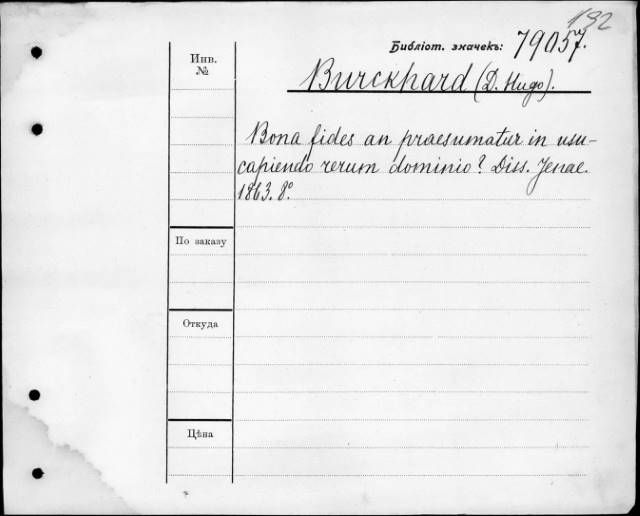 132
Библіот. значекъ: 79057.
Инв.
№
Burckhard (D. Hugo).
Bona fides an praesumatur in usu-
capiendo rerum dominio? Diss. Jenae.
1863. 8°.
По заказу
Откуда
Цѣна